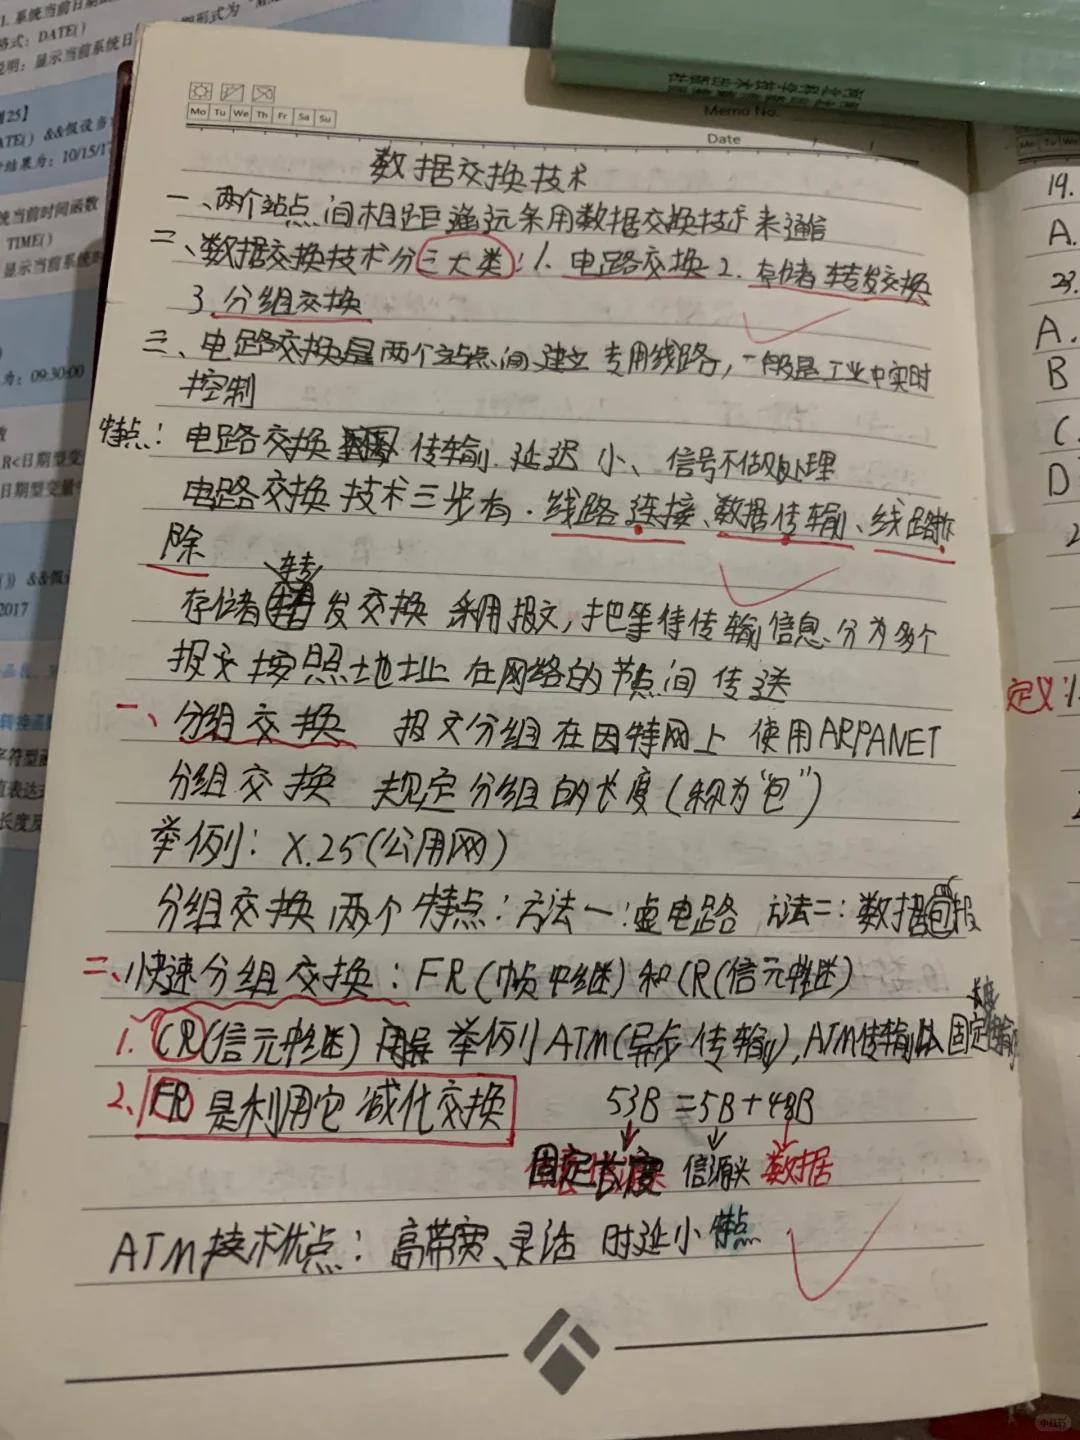 1. 系统当前日期
格式: DATE()
说明: 显示当前系统日
例25】
DATE() &&假设当
结果为: 10/15/17
统当前时间函数
TIME()
显示当前系统时
为: 09:30:00
R<日期型变
日期型变量
()) &&假
2017
转换函数
字符型
值表达式
长度及
Memo No.
Date
Mo Tu We Th Fr Sa Su
数据交换技术
一、两个站点间相距遥远采用数据交换技术来通信
二、数据交换技术分三大类: 1. 电路交换 2. 存储转发交换
3. 分组交换
三、电路交换是两个站点间建立专用线路, 一般是工业中实时
控制
特点: 电路交换 传输延迟小、信号不做处理
电路交换技术三步有. 线路连接、数据传输、线路拆
除
存储转发交换 采用报文, 把等待传输信息分为多个
报文按照地址在网络的节点间传送
一、分组交换 报文分组在因特网上使用ARPANET
分组交换 规定分组的长度(称为“包”)
举例: X.25(公用网)
分组交换两个特点: 方法一: 虚电路 方法二: 数据报
二、快速分组交换: FR(帧中继)和CR(信元中继)
1. CR(信元中继) 举例 ATM(异步传输), ATM传输 固定长度传输
2. FR 是利用它减化交换
53B = 5B + 48B
固定长度 信源头 数据
ATM技术优点: 高带宽、灵活 时延小 特点
19.
A.
23.
A.
B
C.
D
2
定义: 1.
小红书